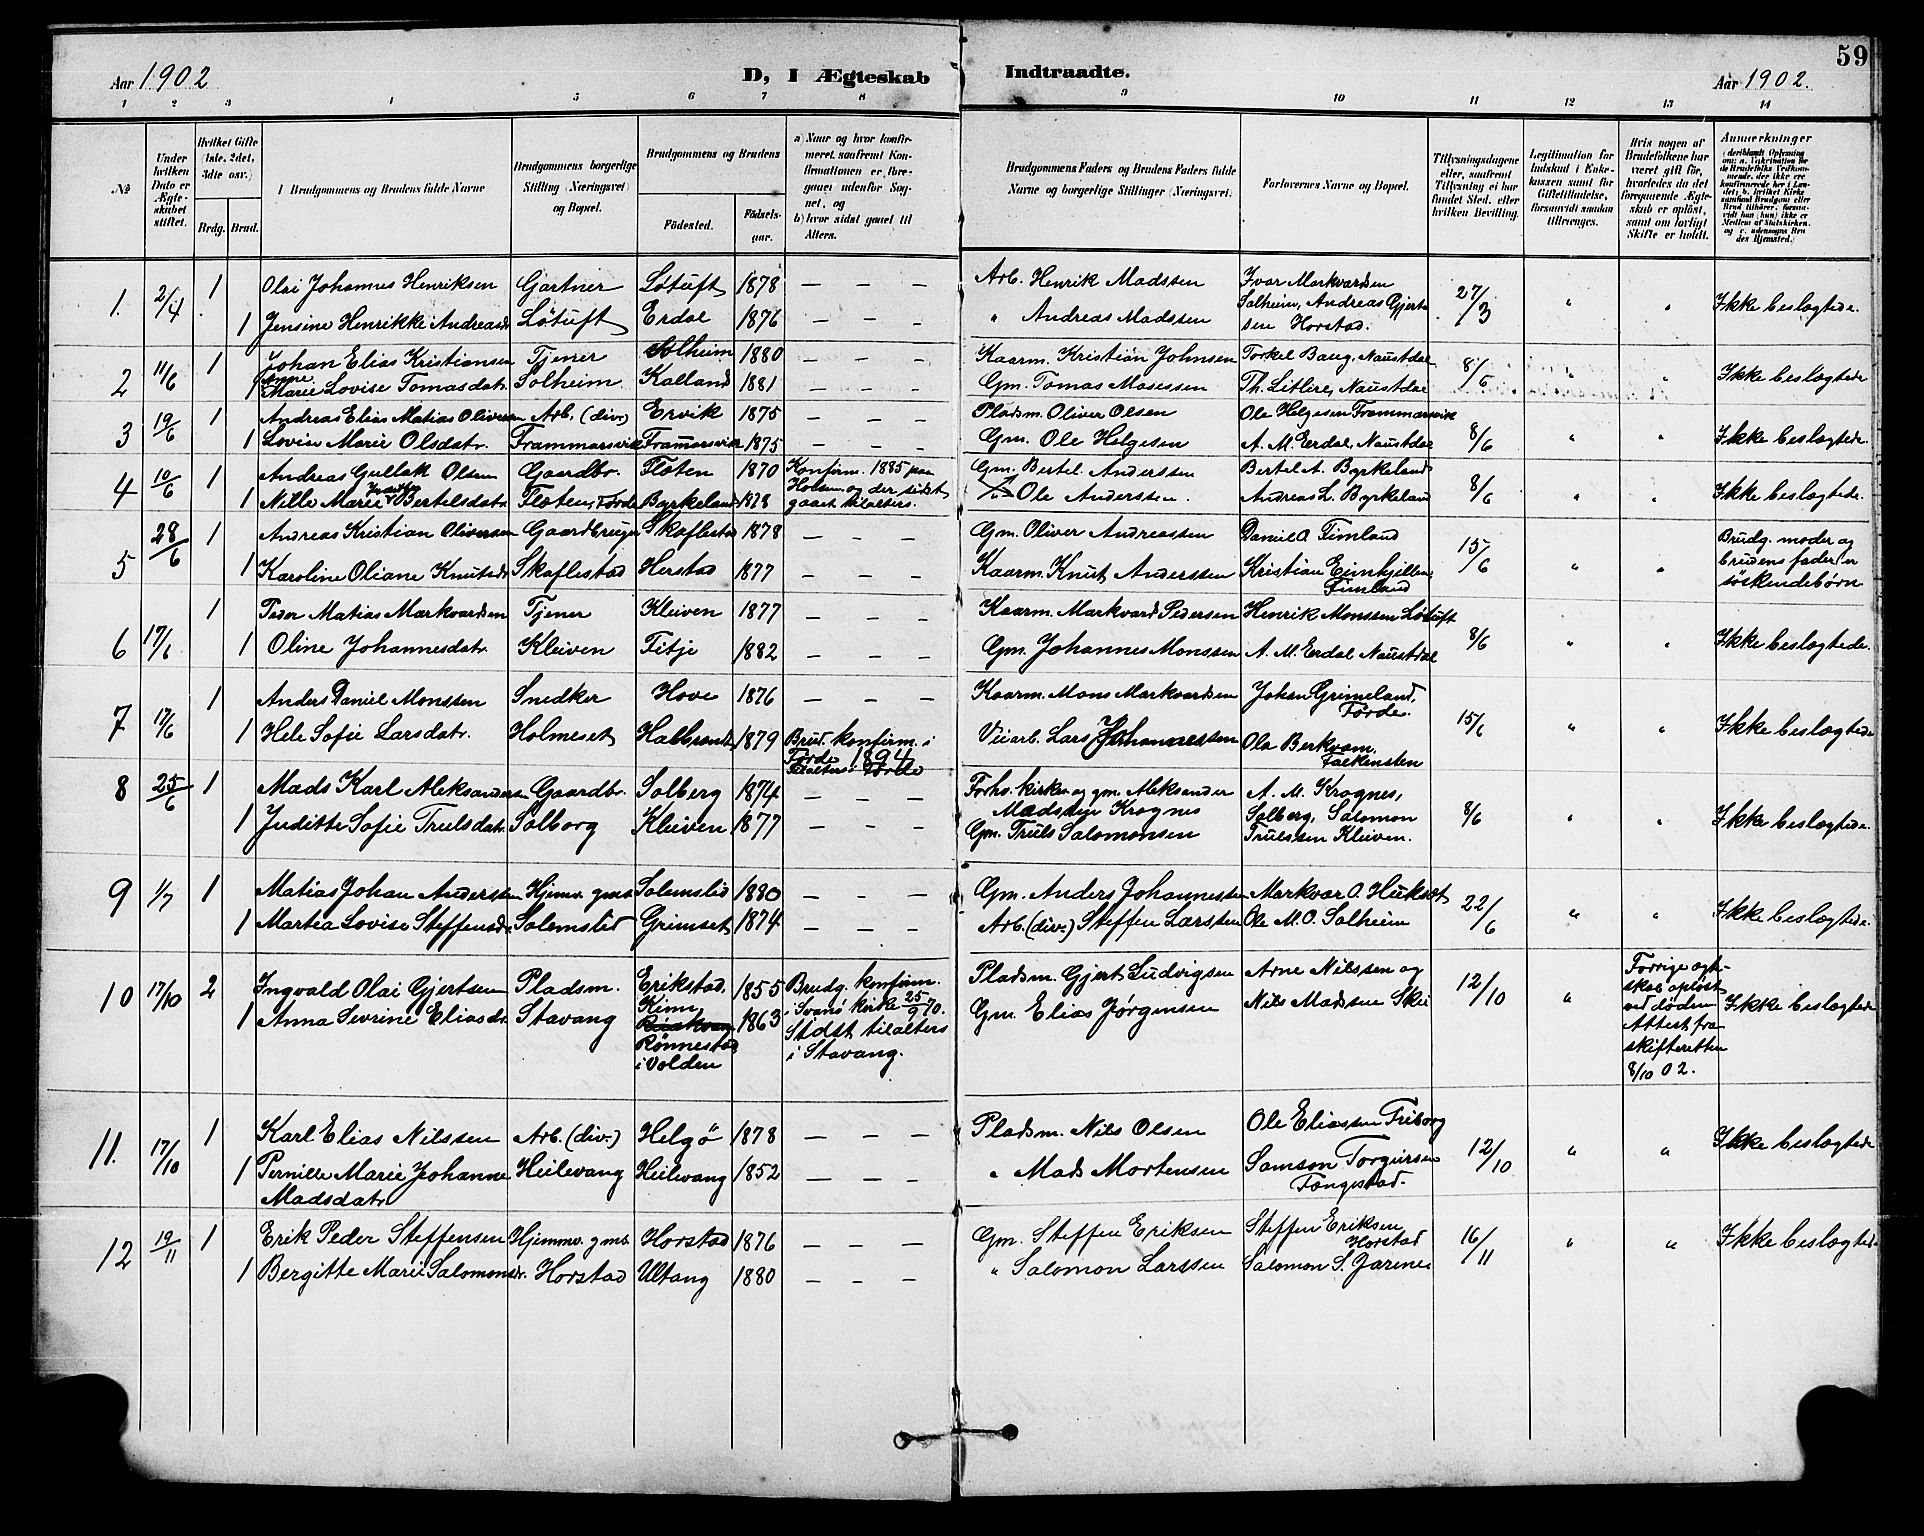 59
Aar 1902
D, I Ægteskab Indtraadte.
Aar 1902.
1 2 3 4 5 6 7 8 9 10 11 12 13 14
No
Under hvilken Dato er Ægteskabet stiftet.
Hvilket Gifte (1ste, 2det, 3die osv.)
Brdg. Brud.
Brudgommens og Brudens fulde Navne
Brudgommens borgerlige Stilling (Næringsvei) og Bopæl.
Brudgommens og Brudens
Fødested. Fødselsaar.
a) Naar og hvor konfirmeret, saafremt Konfirmationen er foregaaet udenfor Sognet, og
b) hvor sidst gaaet til Alters.
Brudgommens Faders og Brudens Faders fulde Navne og borgerlige Stillinger (Næringsvei).
Forlovernes Navne og Bopæl.
Tillysningsdagene eller, saafremt Tillysning ei har fundet Sted, efter hvilken Bevilling.
Legitimation for Indskud i Enkekassen samt for Giftetilladelse, forsaavidt saadan tiltrænges.
Hvis nogen af Brudefolkene har været gift før, hvorledes da det foregaaende Ægteskab er opløst, samt om lovligt Skifte er holdt.
Anmerkninger
1. 2/4 1 Olai Johannes Henriksen Gartner Løtuft 1878 — — — Arb. Henrik Madssen Ivar Markvardsen 27/3 " " Ikke beslægtede.
1 Jensine Henrikke Andreasdr Løtuft Erdal 1876 — — — " Andreas Madssen Solheim, Andreas Gjertsen Horstad.
2 11/6 1 Johan Elias Kristiansen Tjener Solheim 1880 — — — Kaarm. Kristian Johnsen Torkel Baug, Naustdal 8/6 " " Ikke beslægtede
1 Anne Marie Lovise Tomasdatr. Solheim Kalland 1881 — — — Gm. Tomas Mosessen Th. Litlere, Naustdal
3 19/6 1 Andreas Elias Matias Oliversen Arb. (div.) Ervik 1875 — — — Pladsm. Oliver Olsen Ole Helgesen Frammarsvik 8/6 " " Ikke beslægtede
1 Lovise Marie Olsdatr. Frammarsvik Frammarsvik 1875 — — — Gm. Ole Helgesen A. M. Erdal, Naustdal
4 10/6 1 Andreas Gullak Olsen Gaardbr. Floten 1870 Konfirm. 1885 paa Gm. Bertel Anderssen Bertel A. Byrkeland 8/6 " " Ikke beslægtede.
1 Nille Marie Bertelsdatr. Floten, Førde Byrkeland 1878 Holsen og der sidst gaaet tilalters. Ole Anderssen. Andreas L. Byrkeland
5 28/6 1 Andreas Kristian Oliversen Gaardbruger Skaflestad 1878 — — — Gm. Oliver Andreassen Daniel A Fimland 15/6 " " Brudg. moder og brudens fader er søskendebørn
1 Karoline Oliane Knutsdr Skaflestad Herstad 1877 — — — Kaarm. Knut Anderssen Kristian Eimhjillen, Fimland
6 17/6 1 Peder Matias Markvardsen Tjener Kleiven 1877 — — — Kaarm. Markvard Pedersen Henrik Monssen Løtuft 8/6 " " Ikke beslægtede.
1 Oline Johannesdatr. Kleiven Fitje 1882 — — — Gm. Johannes Monssen A. M. Erdal Naustdal
7 17/6 1 Anders Daniel Monssen Snedker Hove 1876 — — — Kaarm. Mons Markvardsen Johan Grimeland, Førde. 15/6 " " Ikke beslægtede
1 Hele Sofie Larsdatr. Holmeset Halbrendt 1879 Brud. konfirm. i Førde 1894 Tilalters i Førde Veiarb. Lars Johannessen Ola Berkvam Falkensten
8 25/6 1 Mads Karl Aleksandersen Gaardbr. Solberg 1874 — — — Forhv. kirkev og gm. Aleksander Madssen Krognes A. M. Krognes, 8/6 " " Ikke beslægtede.
1 Juditte Sofie Trulsdatr. Solberg Kleiven 1877 — — — Gm. Truls Salomonsen Solberg, Salomon Trulssen Kleiven.
9 1/7 1 Matias Johan Anderssen Hjemv. gms. Solemslid 1880 — — — Gm. Anders Johannessen Markvar O. Hukset 22/6 " " Ikke beslægtede.
1 Martea Lovise Steffensdr. Solemslid Grimset 1874 — — — Arb. (div.) Steffen Larssen Ole M. O. Solheim
10 17/10 2 Ingvald Olai Gjertsen Pladsm. Erikstad, Kinn 1855 Brudg. konfirm. i Svanø kirke 25/9 70. Pladsm. Gjert Ludvigsen Arne Nilssen og 12/10 " Forrige ægteskab opløst ved døden Attest fra skifteretten 8/10 02. Ikke beslægtede
1 Anna Sevrine Eliasdr. Stavang Rønnestad i Volden 1863 Sidst tilalters i Stavang. Gm. Elias Jørgensen Nils Madssen Skei
11. 17/10 1 Karl Elias Nilssen Arb. (div.) Helgø 1878 — — — Pladsm. Nils Olsen Ole Eliassen Friborg 12/10 " " Ikke beslægtede
1 Pernille Marie Johanne Madsdatr Heilevang Heilevang 1852 — — — " Mads Mortensen Samson Torgeirsen Fongestad.
12 19/11 1 Erik Peder Steffensen Hjemmv. gms. Horstad 1876 — — — Gm. Steffen Eriksen Steffen Eriksen Horstad 16/11 " " Ikke beslægtede
1 Bergitte Marie Salomonsdr. Horstad Ultang 1880 — — — " Salomon Larssen Salomon S. Jarenes